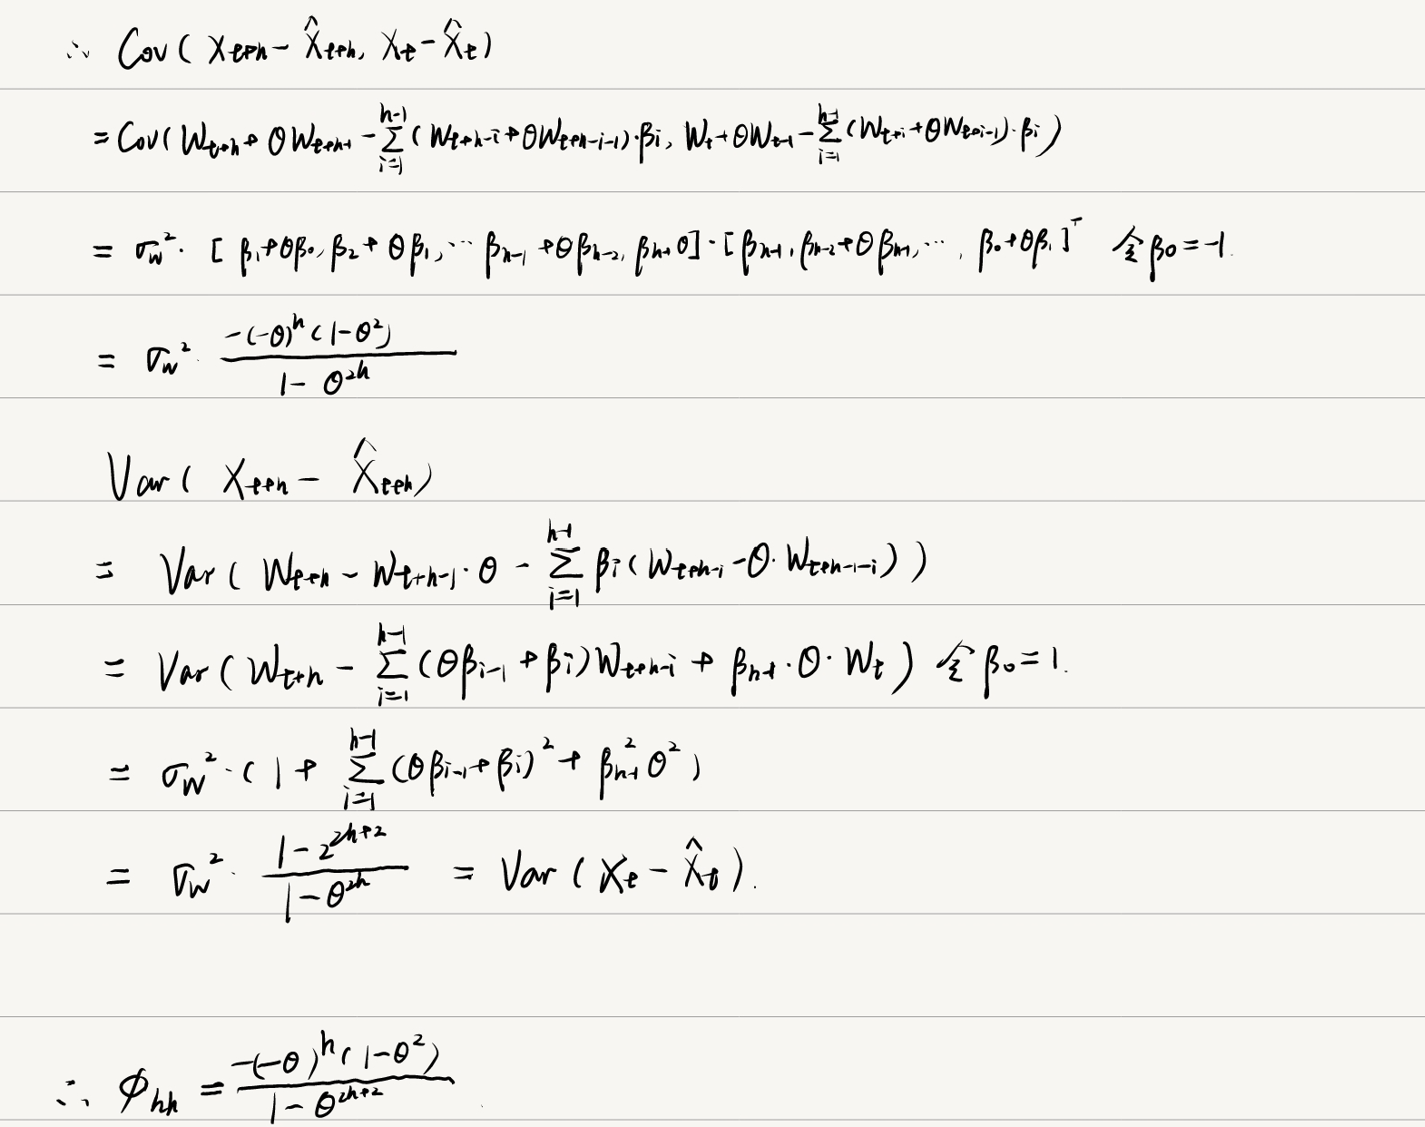 ∴ Cov(X_{t+h} - X̂_{t+h}, X_t - X̂_t)
= Cov(W_{t+h} + θW_{t+h-1} - Σ_{i=1}^{h-1}(W_{t+h-i} + θW_{t+h-i-1})·β_i, W_t + θW_{t-1} - Σ_{i=1}^{h-1}(W_{t+i} + θW_{t+i-1})·β_i)
= σ_w²·[β_1+θβ_0, β_2+θβ_1, ... β_{h-1}+θβ_{h-2}, β_{h-1}θ]·[β_{h-1}, β_{h-2}+θβ_{h-1}, ..., β_0+θβ_1]^T 令β_0=-1.
= σ_w²· \frac{-(-θ)^h(1-θ²)}{1-θ^{2h}}
Var(X_{t+h} - X̂_{t+h})
= Var(W_{t+h} - W_{t+h-1}·θ - Σ_{i=1}^{h-1} β_i(W_{t+h-i} - θ·W_{t+h-1-i}))
= Var(W_{t+h} - Σ_{i=1}^{h-1}(θβ_{i-1} + β_i)W_{t+h-i} + β_{h-1}·θ·W_t) 令β_0=1.
= σ_w²·(1 + Σ_{i=1}^{h-1}(θβ_{i-1}+β_i)² + β_{h-1}²θ²)
= σ_w²· \frac{1-2^{2h+2}}{1-θ^{2h}} = Var(X_t - X̂_t).
∴ φ_{hh} = \frac{-(-θ)^h(1-θ²)}{1-θ^{2h+2}}